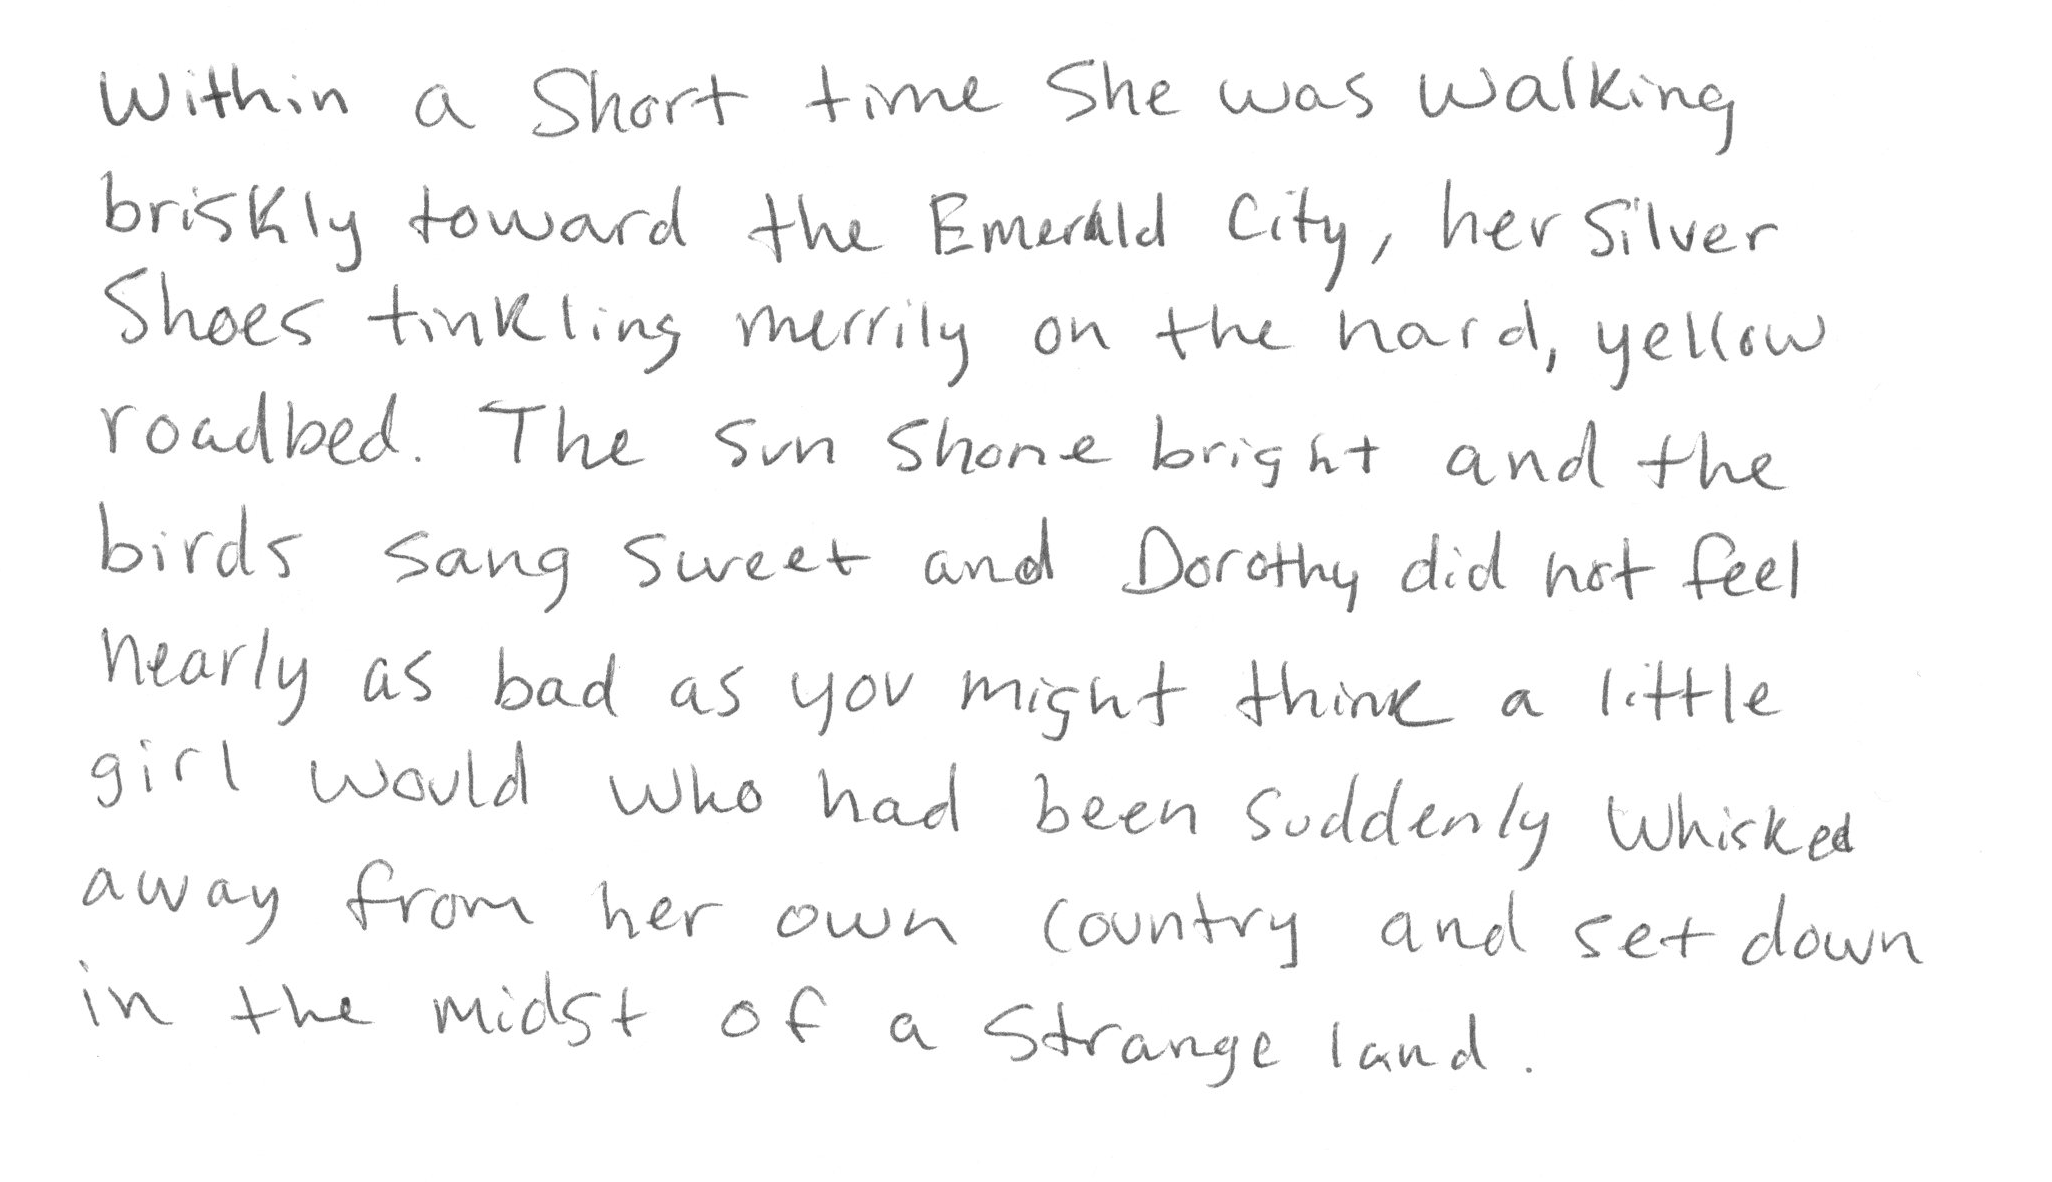 Within a short time she was walking
briskly toward the Emerald City, her Silver
Shoes tinkling merrily on the hard, yellow
roadbed. The sun shone bright and the
birds sang sweet and Dorothy did not feel
nearly as bad as you might think a little
girl would who had been suddenly whisked
away from her own country and set down
in the midst of a strange land.